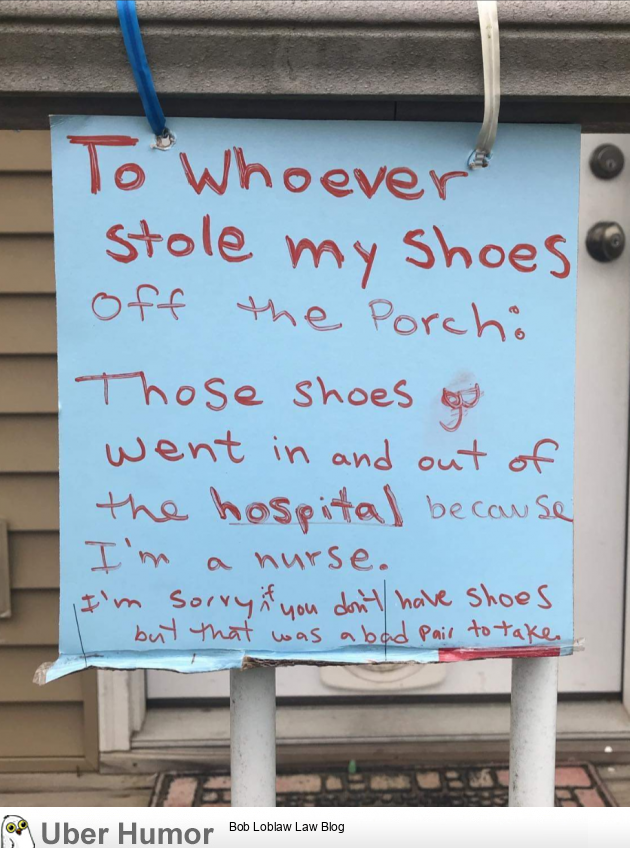 To Whoever
stole my shoes
off the Porch:
Those shoes
went in and out of
the hospital because
I'm a nurse.
I'm sorry if you don't have shoes
but that was a bad pair to take.
Uber Humor
Bob Loblaw Law Blog